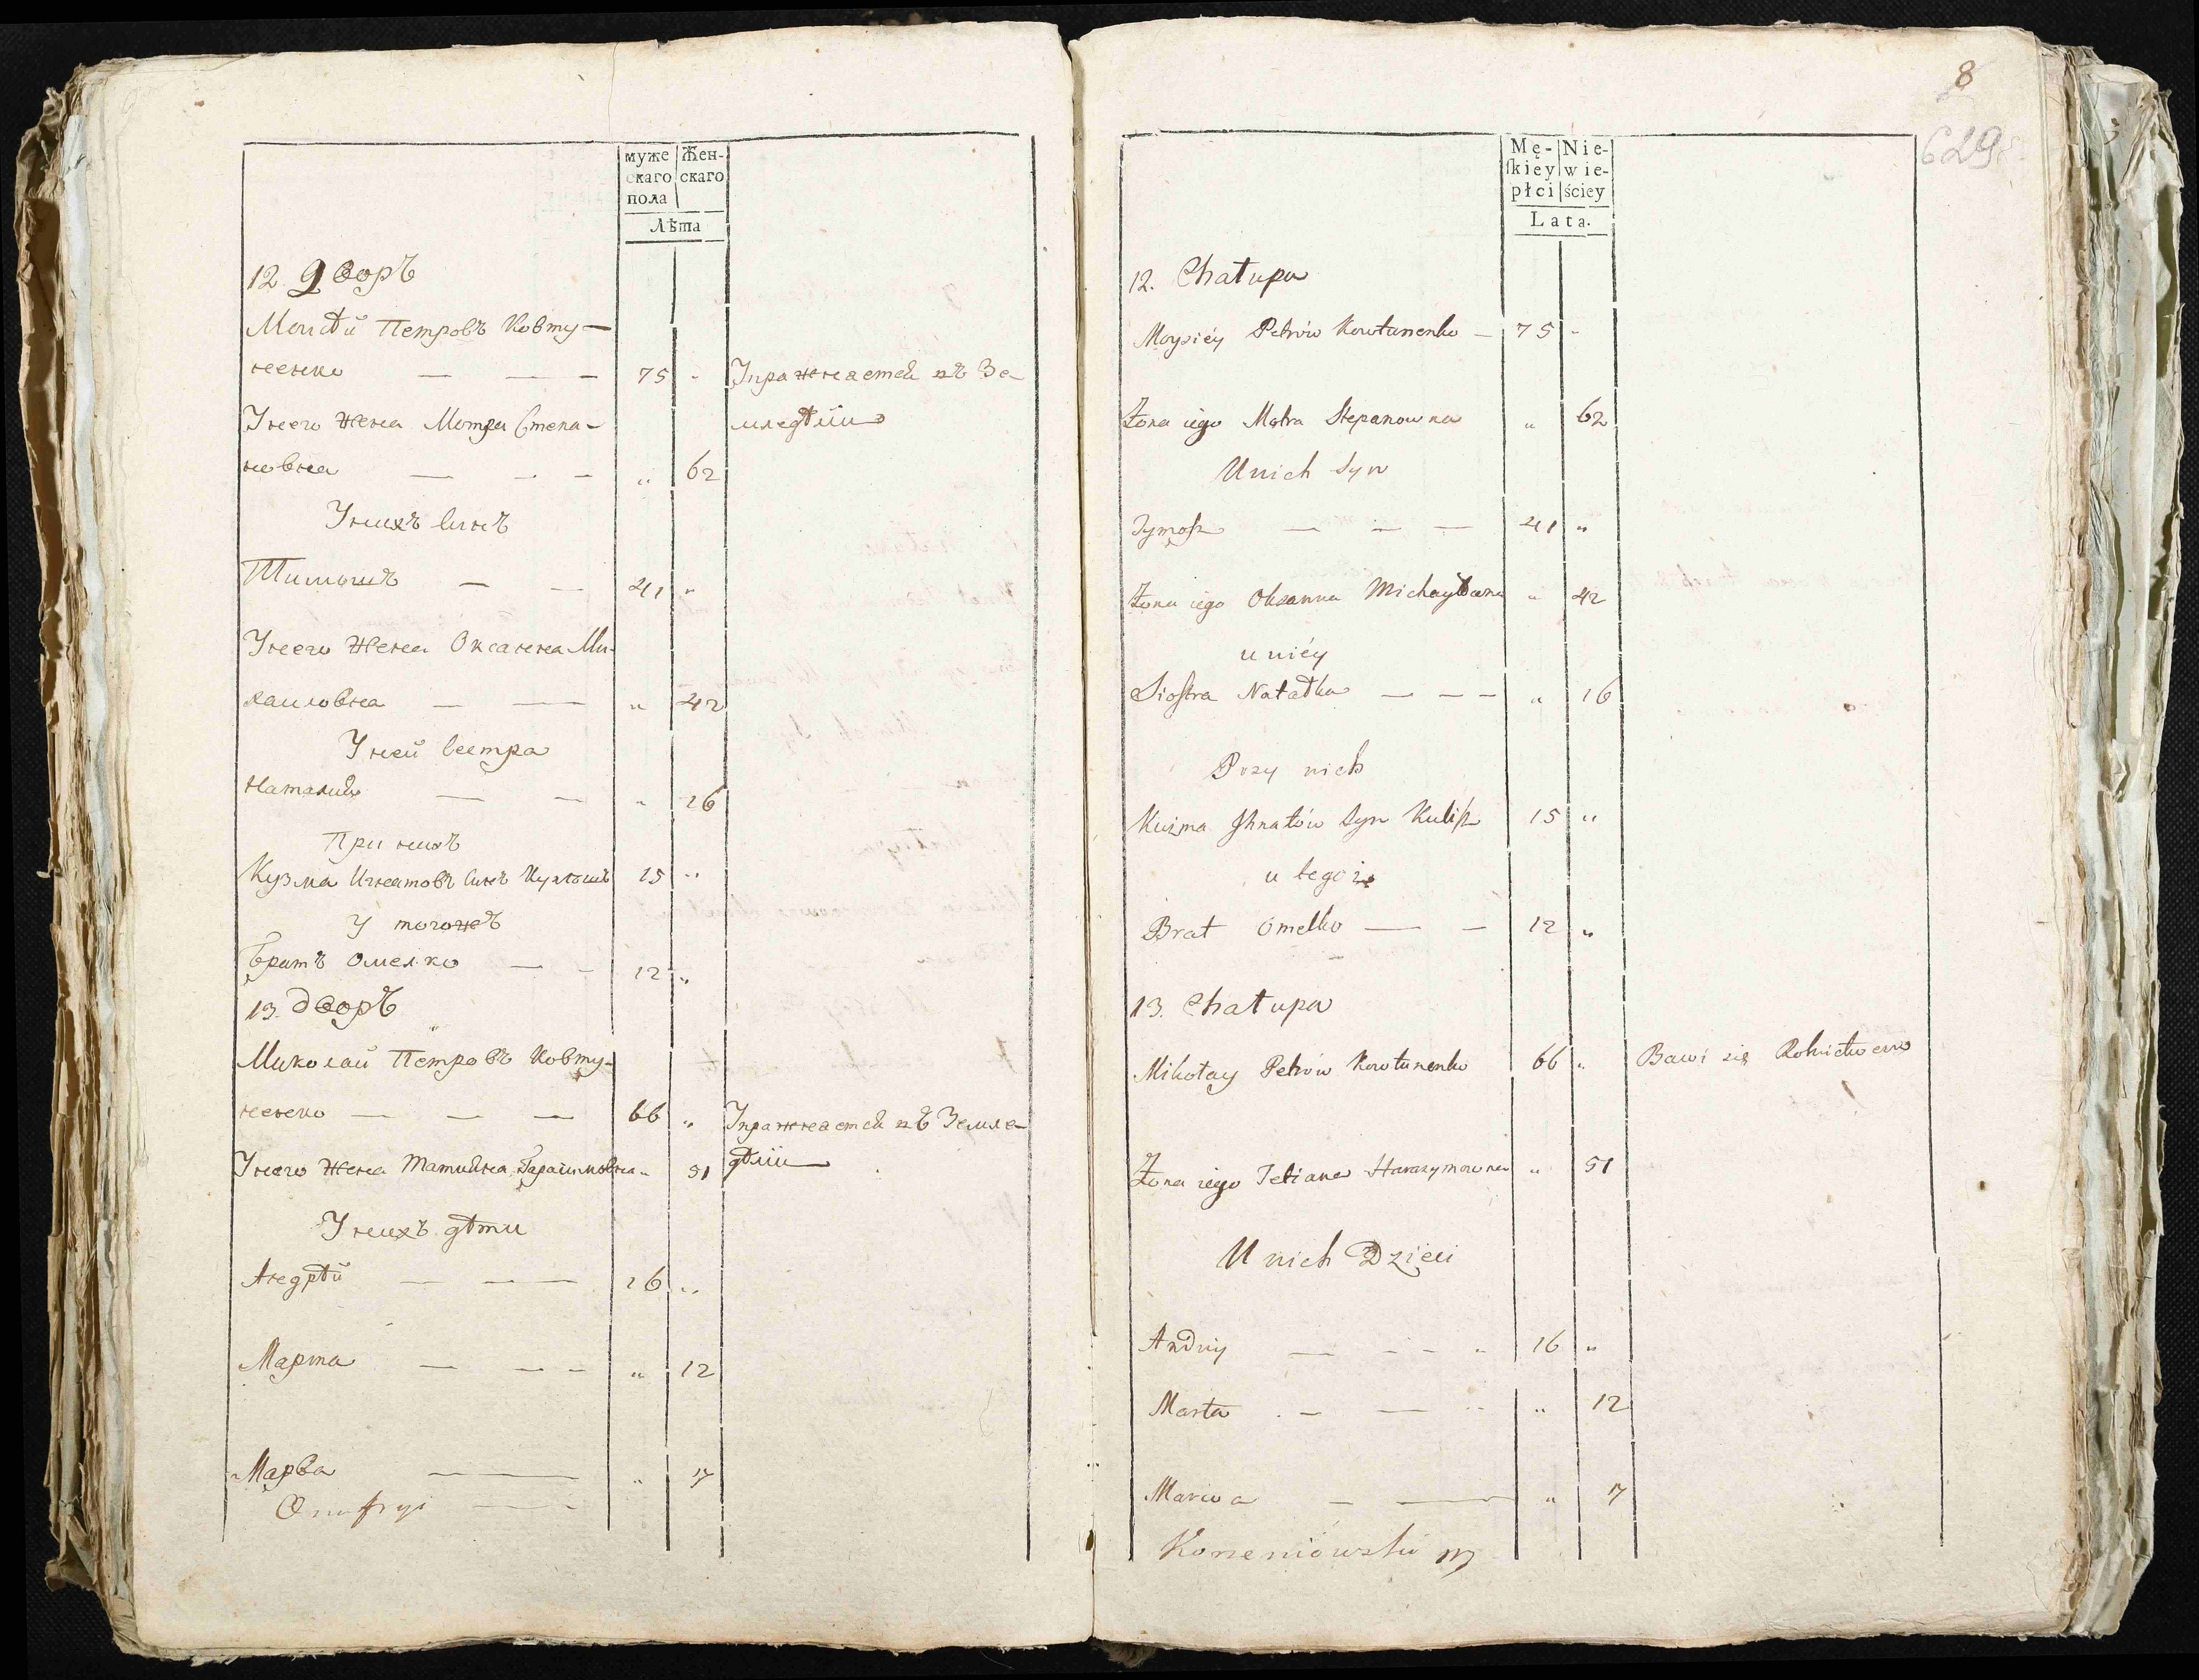 муже
скаго
пола
Жен-
скаго
Лѣта
12 Дворъ
Моисѣй Петровъ Ковту-
ненко — — — 75 „ Упражняется въ Зе-
У него жена Мотря Степа- мледѣліи
новна — — — „ 62
У нихъ Синъ
Тимошъ — — 41 „
У него жена Оксанна Ми-
хайловна — — „ 42
У ней Сестра
Наталія — — „ 16
При нихъ
Кузма Игнатовъ Синъ Кулѣшъ 15 „
У тогожъ
Братъ Омелко — — 12 „
13. Дворъ
Миколай Петровъ Ковту-
ненко — — — 66 „ Упражняется въ Землe-
У него жена Татияна Гарасимовна „ 51 дѣліи
У нихъ дѣти
Андрѣй — — 16 „
Марта — — — „ 12
Марва — „ 7
Onufryi — —
8
629
Mę-
skiey
płci
Nie-
wie-
ściey
Lata.
12. Chałupa
Moysiéy Petrów Kowtunenko — 75 „
Żona iego Motra Stepanowna „ 62
U nich Syn
Tymosz — — — 41 „
Żona iego Oksanna Michayłowna „ 42
u niéy
Siostra Natałka — — — „ 16
Przy nich
Kuźma Ihnatów Syn Kulisz 15 „
u tegoż
Brat Omelko — — 12 „
13. Chałupa
Mikołay Petrów Kowtunenko 66 „ Bawi się Rolnictwem
Żona iego Tetiana Harasymowna „ 51
U nich Dzieci
Andriy — — — 16 „
Marta — — „ 12
Marwa — — „ 7
Korzeniówski